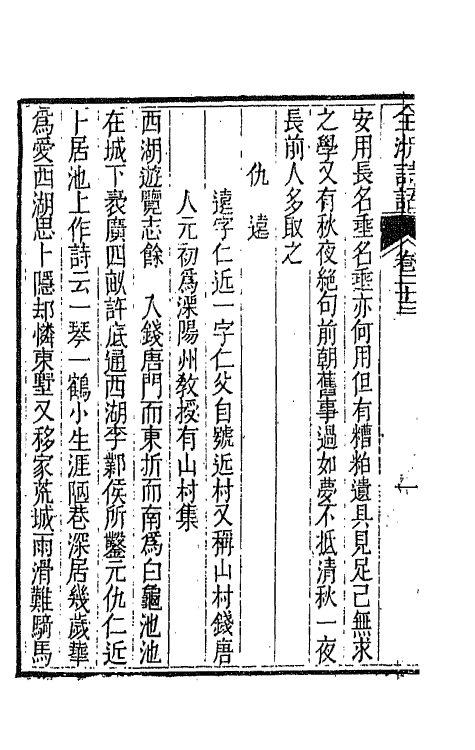 全浙詩話 卷二十三 一
安用長名垂名垂亦何用但有糟粕遺具見足己無求
之學又有秋夜絶句前朝舊事過如夢不抵清秋一夜
長前人多取之
仇遠
遠字仁近一字仁父自號近村又稱山村錢唐
人元初爲溧陽州敎授有山村集
西湖遊覽志餘 入錢唐門而東折而南爲白龜池池
在城下袤廣四畝許底通西湖李鄴侯所鑿元仇仁近
卜居池上作詩云一琴一鶴小生涯陋巷深居幾歲華
爲愛西湖思卜隱却憐東墅又移家荒城雨滑難騎馬